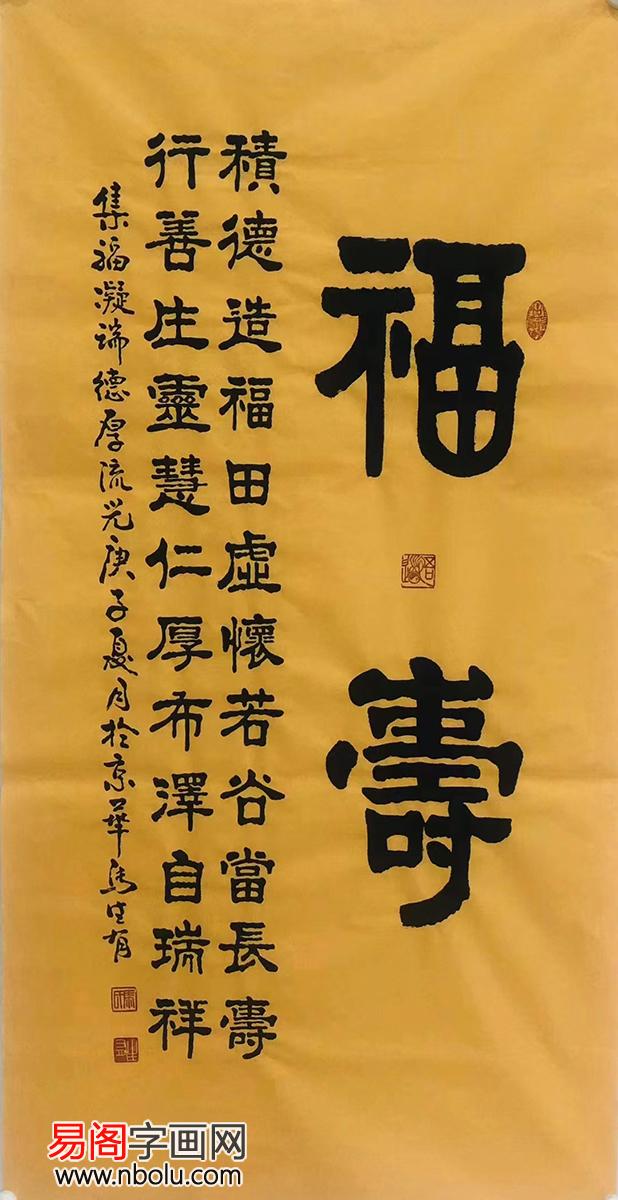 福壽
積德造福田虛懷若谷當長壽
行善生靈慧仁厚布澤自瑞祥
集福凝瑞德厚流光庚子夏月於京華馬生有
易阁字画网
www.nbolu.com